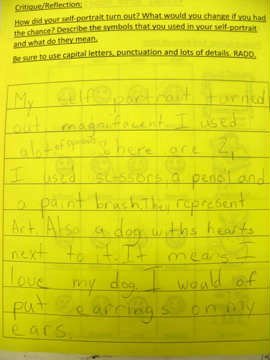 Critique/Reflection:
How did your self-portrait turn out? What would you change if you had
the chance? Describe the symbols that you used in your self-portrait
and what do they mean.
Be sure to use capital letters, punctuation and lots of details. RADD.
My self portrait turned
out magnifacent. I used
alot of symbols, here are 2,
I used scissors a pencil and
a paint brush. They represent
Art. Also a dog withs hearts
next to it. It means I
love my dog. I would of
put earrings on my
ears.